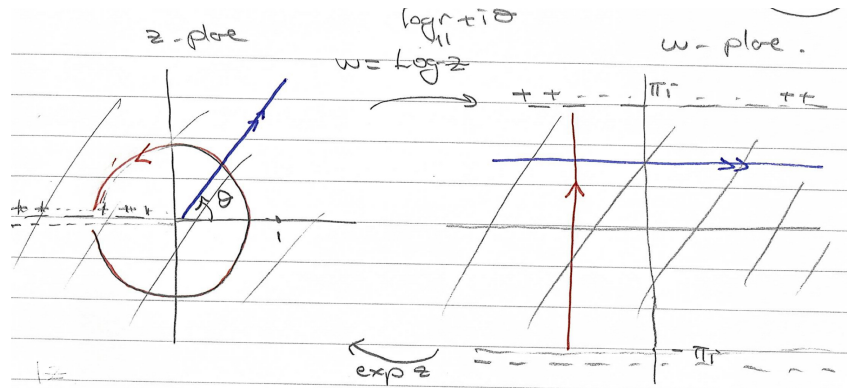 z-plane
log r + iθ
॥
w = Log z
w-plane.
+ + - . . . πi . . . ++
θ
+ + + +++
1
- πi
exp z